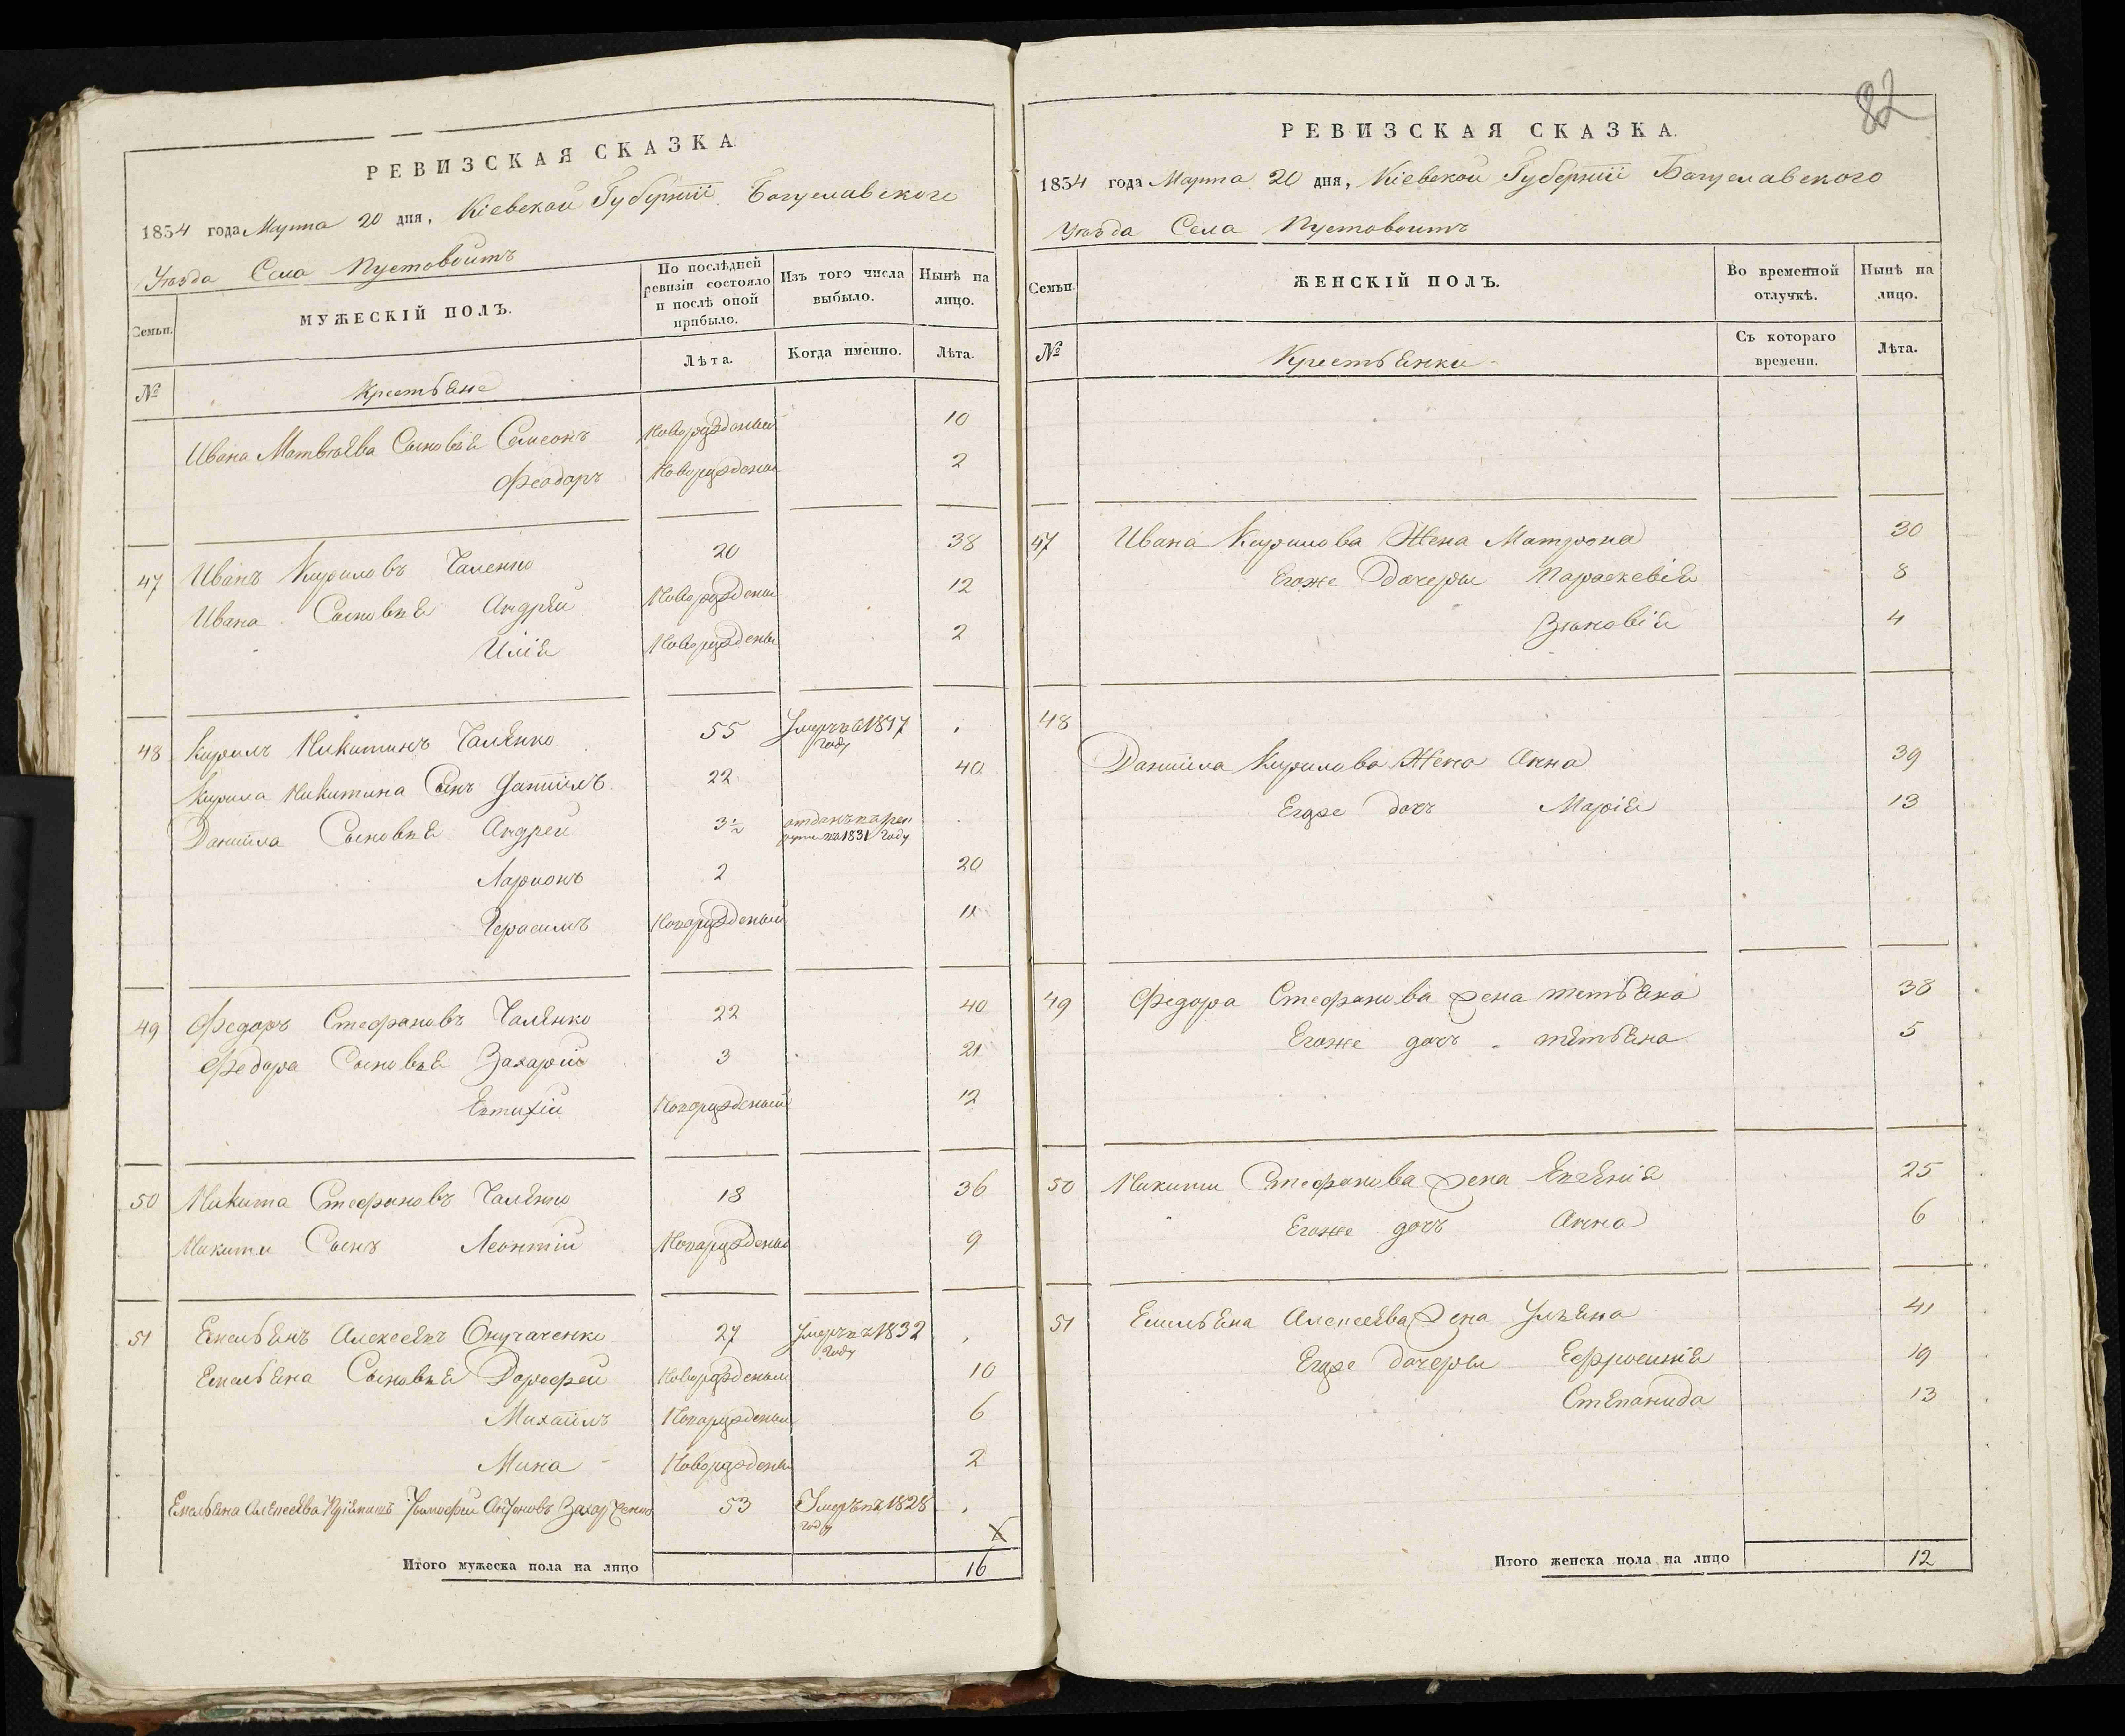 РЕВИЗСКАЯ СКАЗКА
1834 года Марта 20 дня, Кіевской Губерніи Богуславского
Уѣзда Села Пустовоитъ
Семьи.
МУЖЕСКІЙ ПОЛЪ.
По послѣдней ревизіи состояло и послѣ оной прибыло.
Изъ того числа выбыло.
Нынѣ на лицо.
Лѣта.
Когда именно.
Лѣта.
№
Крестьяне
Ивана Матвѣева Сыновья Симеонъ Новорожденый 10
Феодоръ Новорожденый 2
47 Иванъ Кириловъ Чаленко 20 38
Ивана Сыновья Андрей Новорожденый 12
Илія Новорожденый 2
48 Кирилъ Никитинъ Чаленко 55 Умеръ въ 1817 году
Кирила Никитина Сынъ Даніилъ 22 40
Даніила Сыновья Андрей 3½ отданъ въ рекруты въ 1831 году
Ларионъ 2 20
Герасимъ Новорожденый 11
49 Федоръ Стефановъ Чаленко 22 40
Федора Сыновья Захарій 3 21
Евтихій Новорожденый 12
50 Никита Стефановъ Чаленко 18 36
Никиты Сынъ Леонтій Новорожденый 9
51 Емельянъ Алексеевъ Онучаченко 27 Умеръ въ 1832 году
Емельяна Сыновья Дорофей Новорожденый 10
Михаилъ Новорожденый 6
Мина Новорожденый 2
Емельяна Алексеева Пріимакъ Тимофей Антоновъ Захарченко 53 Умеръ въ 1828 году
Итого мужеска пола на лицо 16
82
РЕВИЗСКАЯ СКАЗКА
1834 года Марта 20 дня, Кіевской Губерніи Богуславского
Уѣзда Села Пустовоитъ
Семьи.
ЖЕНСКІЙ ПОЛЪ.
Во временной отлучкѣ.
Нынѣ на лицо.
№
Крестьянки
Съ котораго времени.
Лѣта.
47 Ивана Кирилова Жена Матрона 30
Егоже Дочеры Параскевія 8
Зѣновія 4
48
Даніила Кирилова Жена Анна 39
Егоже дочъ Марія 13
49 Федора Стефанова жена Тетьяна 38
Егоже дочъ Тетьяна 5
50 Никиты Стефанова жена Евгенія 25
Егоже дочъ Анна 6
51 Емельяна Алексеева жена Ульяна 41
Егоже дочеры Ефросинія 19
Степанида 13
Итого женска пола на лицо 12